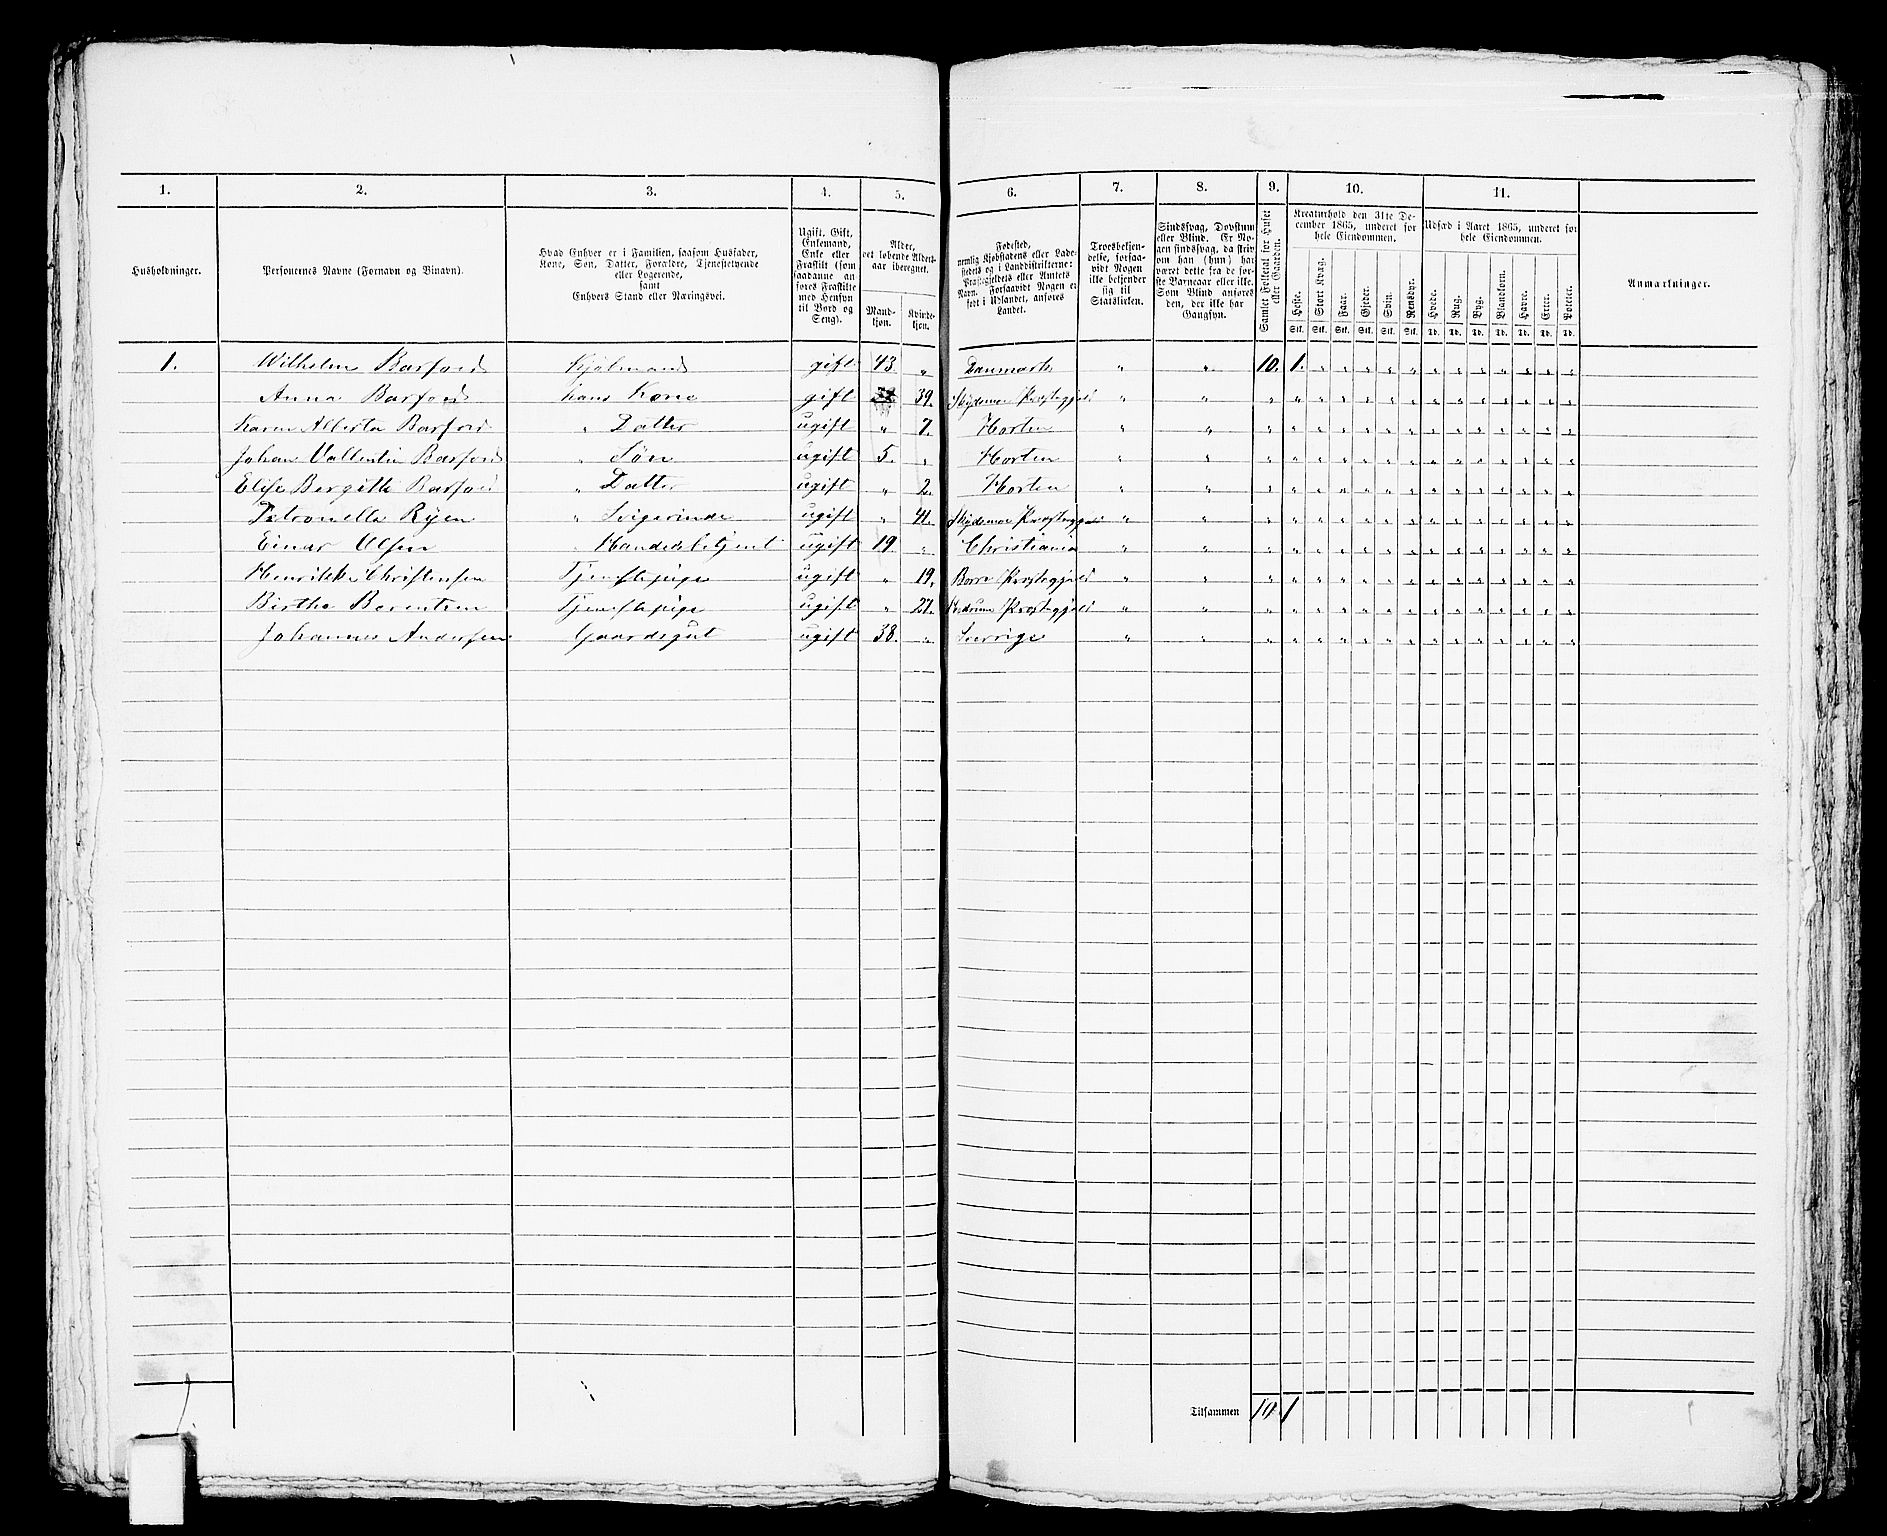 1. 2. 3. 4. 5. 6. 7. 8. 9. 10. 11.
Husholdninger.
Personernes Navne (Fornavn og Binavn).
Hvad Enhver er i Familien, saasom Husfader,
Kone, Søn, Datter, Forældre, Tjenestetyende
eller Logerende,
samt
Enhvers Stand eller Næringsvei.
Ugift, Gift,
Enkemand,
Enke eller
Fraskilt (som
saadanne an-
føres Fraskilte
med Hensyn
til Bord og
Seng).
Alder,
det løbende Alders-
aar iberegnet.
Mand-
kjøn.
Kvinde-
kjøn.
Fødested,
nemlig Kjøbstadens eller Lade-
stedets og i Landdistrikterne:
Præstegjeldets eller Amtets
Navn. Forsaavidt Nogen er
født i Udlandet, anføres
Landet.
Troesbekjen-
delse, forsaa-
vidt Nogen
ikke bekjender
sig til
Statskirken.
Sindssvag, Døvstum
eller Blind. Er No-
gen sindssvag, da skriv
om han (hun) har
været dette fra de før-
ste Barneaar eller ikke.
Som Blind anføres
den, der ikke har
Gangsyn.
Samlet Folketal for Huset
eller Gaarden.
Kreaturhold den 31te De-
cember 1865, underet for
hele Eiendommen.
Heste. Stort Kvæg. Faar. Gjeder. Svin. Rensdyr.
Stk. Stk. Stk. Stk. Stk. Stk.
Udsæd i Aaret 1865, underet for
hele Eiendommen.
Hvede. Rug. Byg. Blandkorn. Havre. Erter. Poteter.
Td. Td. Td. Td. Td. Td. Td.
Anmærkninger.
1. Wilhelm Barfoed Kjøbmand gift 43. „ Danmark „ „ 10. 1. „ „ „ „ „ „ „ „ „ „ „ „
Anna Barfoed hans Kone gift 39. „ „ „ „ „ „ „ „ „ „ „ „ „ „ „ „
Karen Alberta Barfoed „ Datter ugift „ 7. Horten „ „ „ „ „ „ „ „ „ „ „ „ „ „ „ „
Johan Vallentin Barfoed „ Søn ugift 5. „ Horten „ „ „ „ „ „ „ „ „ „ „ „ „ „ „ „
Elise Bergitte Barfoed „ Datter ugift „ 2. Horten „ „ „ „ „ „ „ „ „ „ „ „ „ „ „ „
Petronella Ryen „ Svigerinde ugift „ 41. „ „ „ „ „ „ „ „ „ „ „ „ „ „ „ „
Einar Olsen „ Handelsbetjent ugift 19 „ Christiania „ „ „ „ „ „ „ „ „ „ „ „ „ „ „ „
Henrikke Christensen Tjenestepige ugift „ 19. Borre Præstegjeld „ „ „ „ „ „ „ „ „ „ „ „ „ „ „ „
Birthe Berentsen Tjenestepige ugift „ 27. Præstegjeld „ „ „ „ „ „ „ „ „ „ „ „ „ „ „ „
Johannes Andersen Gaardsgut ugift 38. „ Sverrige „ „ „ „ „ „ „ „ „ „ „ „ „ „ „ „
Tilsammen 10. 1